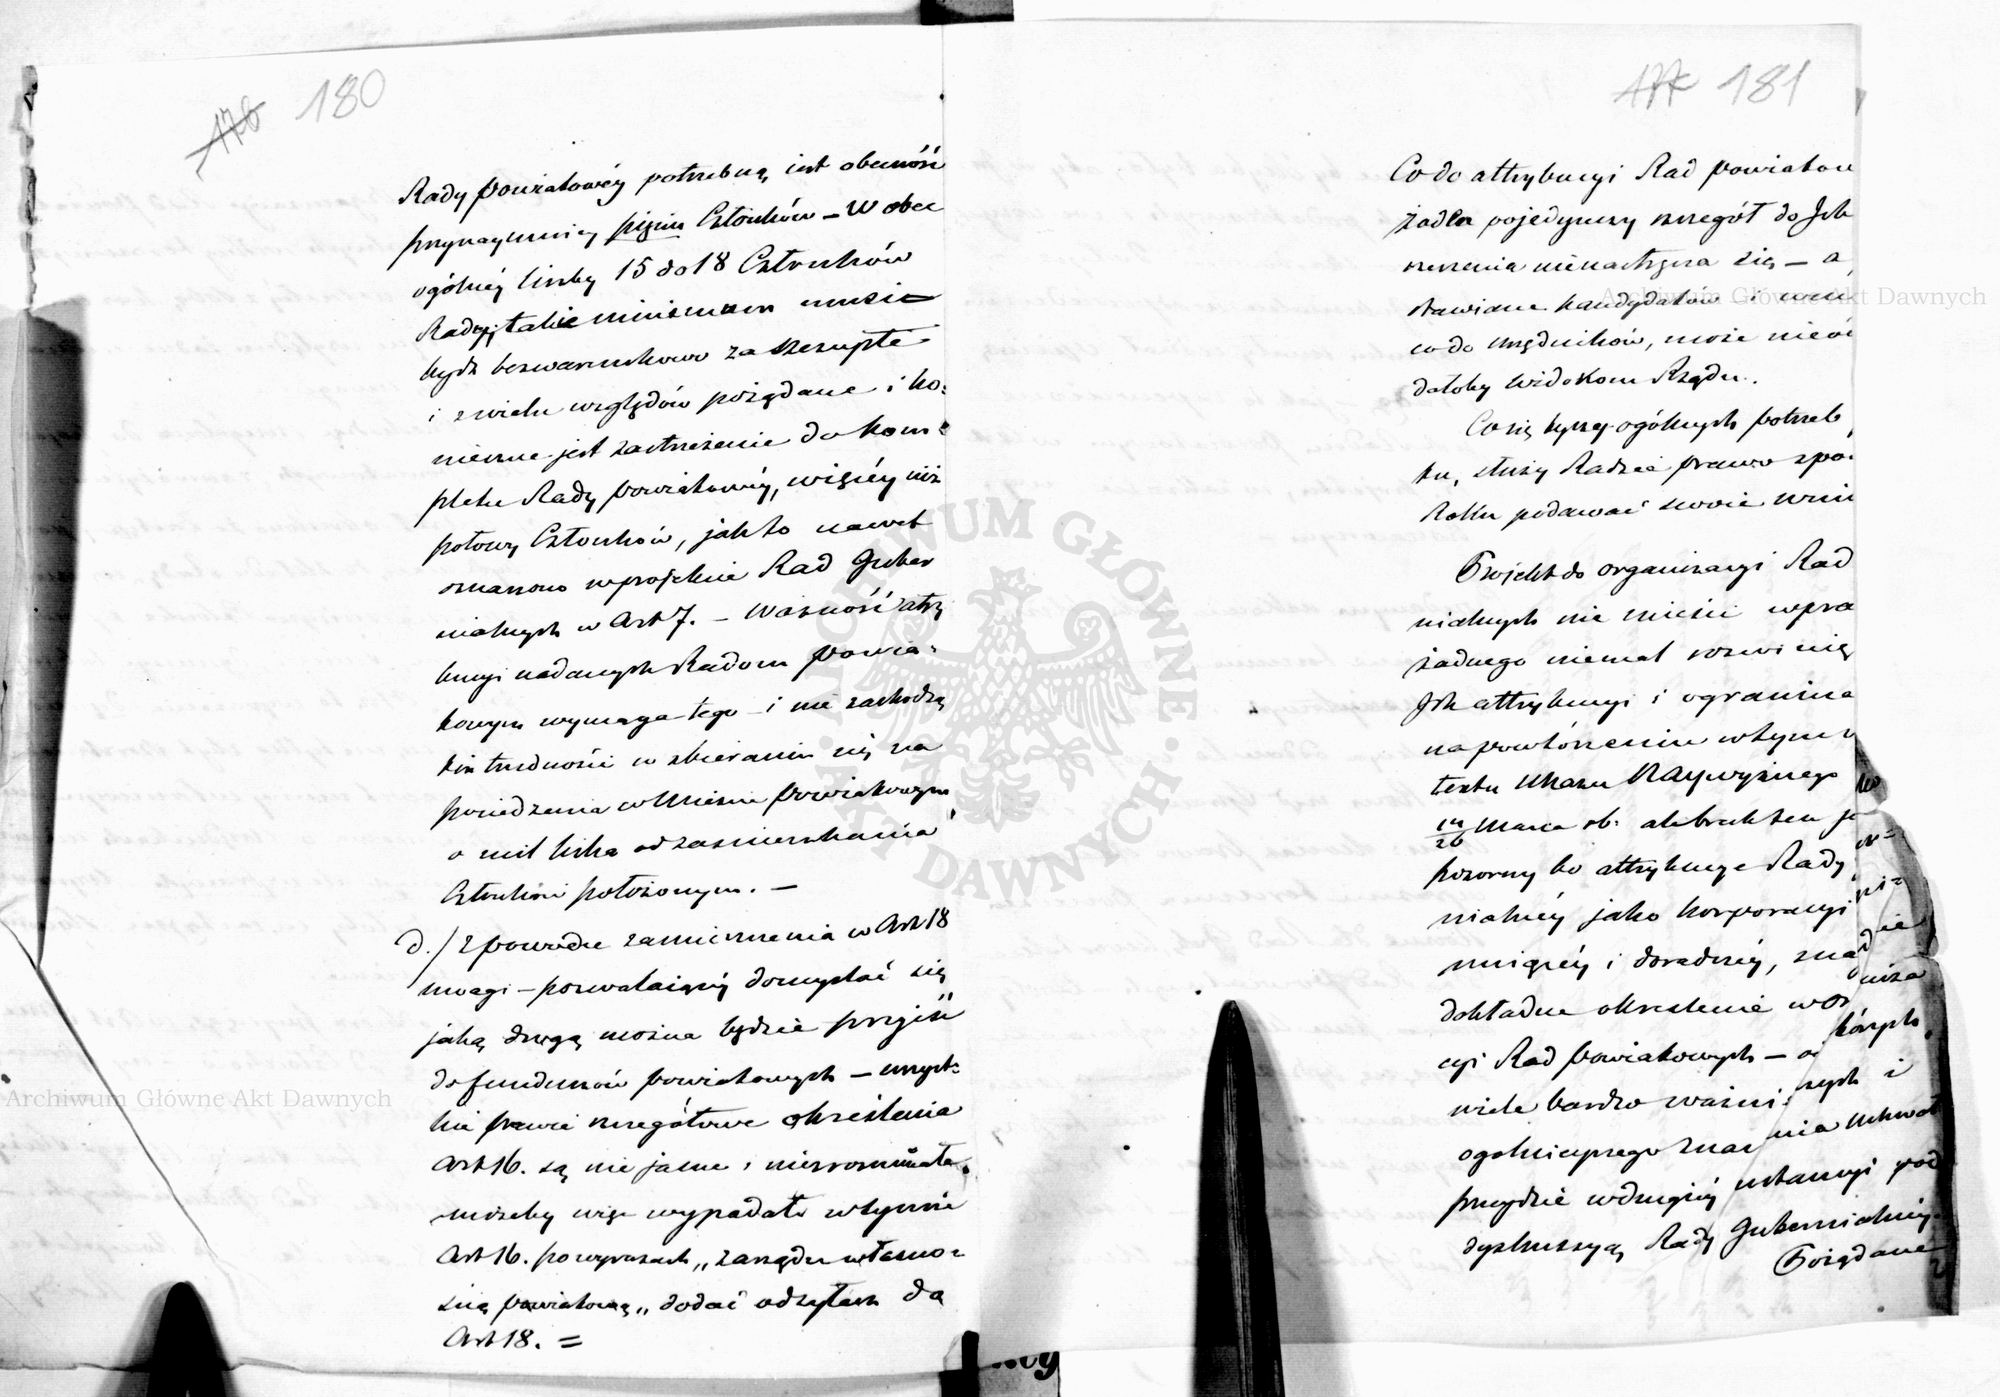 176 180
Rady powiatowéy potrzebną jest obecność
przynaymniéy pięciu Członków – W obec
ogólnéy liczby 15 do 18 Członków
Rady, takie minimum musi
bydź bezwarunkowo za szczupłe
i z wielu względów pożądane i ko=
nieczne jest zastrzeżenie do kom=
pletu Rady powiatowéy, więcéy niż
połowy Członków, jak to nawet
oznaczono w projekcie Rad Guber
nialnych w Art 7. – Ważność atry
bucyi nadanych Radom powia=
towym wymaga tego – i nie zachodzą
trudności w zbieraniu się na
posiedzenia w Mieście powiatowym
o mil kilka od zamieszkania
Członków położonym. –
d./ Z powodu zamieszczenia w Art 18
uwagi – pozwalaiącéy domyślać się
jaką drogą można będzie przyiść
do funduszów powiatowych – wszyst=
kie prawie szczegółowe określenia
Art 16. są nie jasne i niezrozumiałe.
możeby więc wypadało w tymże
Art 16. po wyrazach „zarządu własno=
ścią powiatową„ dodać odsyłacz do
Art 18. =
177 181
Co do attrybucyi Rad powiatow
żaden pojedynczy szczegół do Ich
szczenia nienastręcza się – a
stawiane kandydatów i
co do urzędników, może nieod
dałoby widokom Rządu.
Co się tyczy ogólnych potrzeb
tu, służy Radzie prawo
Roku podawać swoie wni
Projekt do organizacyi Rad
nialnych nie mieści wpra
żadnego niemal rozwinię
Ich attrybucyi i ogranicza
na powtórzeniu w tym
textu Ukazu Naywyższego
14/26 Marca rb. atoli
pozorny bo attrybucye Rady
nialnéy jako korporacyi
i doradczéy, zna die
dokładne określenie w or niza
cyi Rad powiatowych – o których
wiele bardzo ważnych i
ogólnieyszego znaczenia uchwał
przeydzie w drugiéy instancyi pod
dyskussyą Rady Gubernialnéy.
Pożądane
Archiwum Główne Akt Dawnych
Archiwum Główne Akt Dawnych
ARCHIWUM GŁÓWNE AKT DAWNYCH